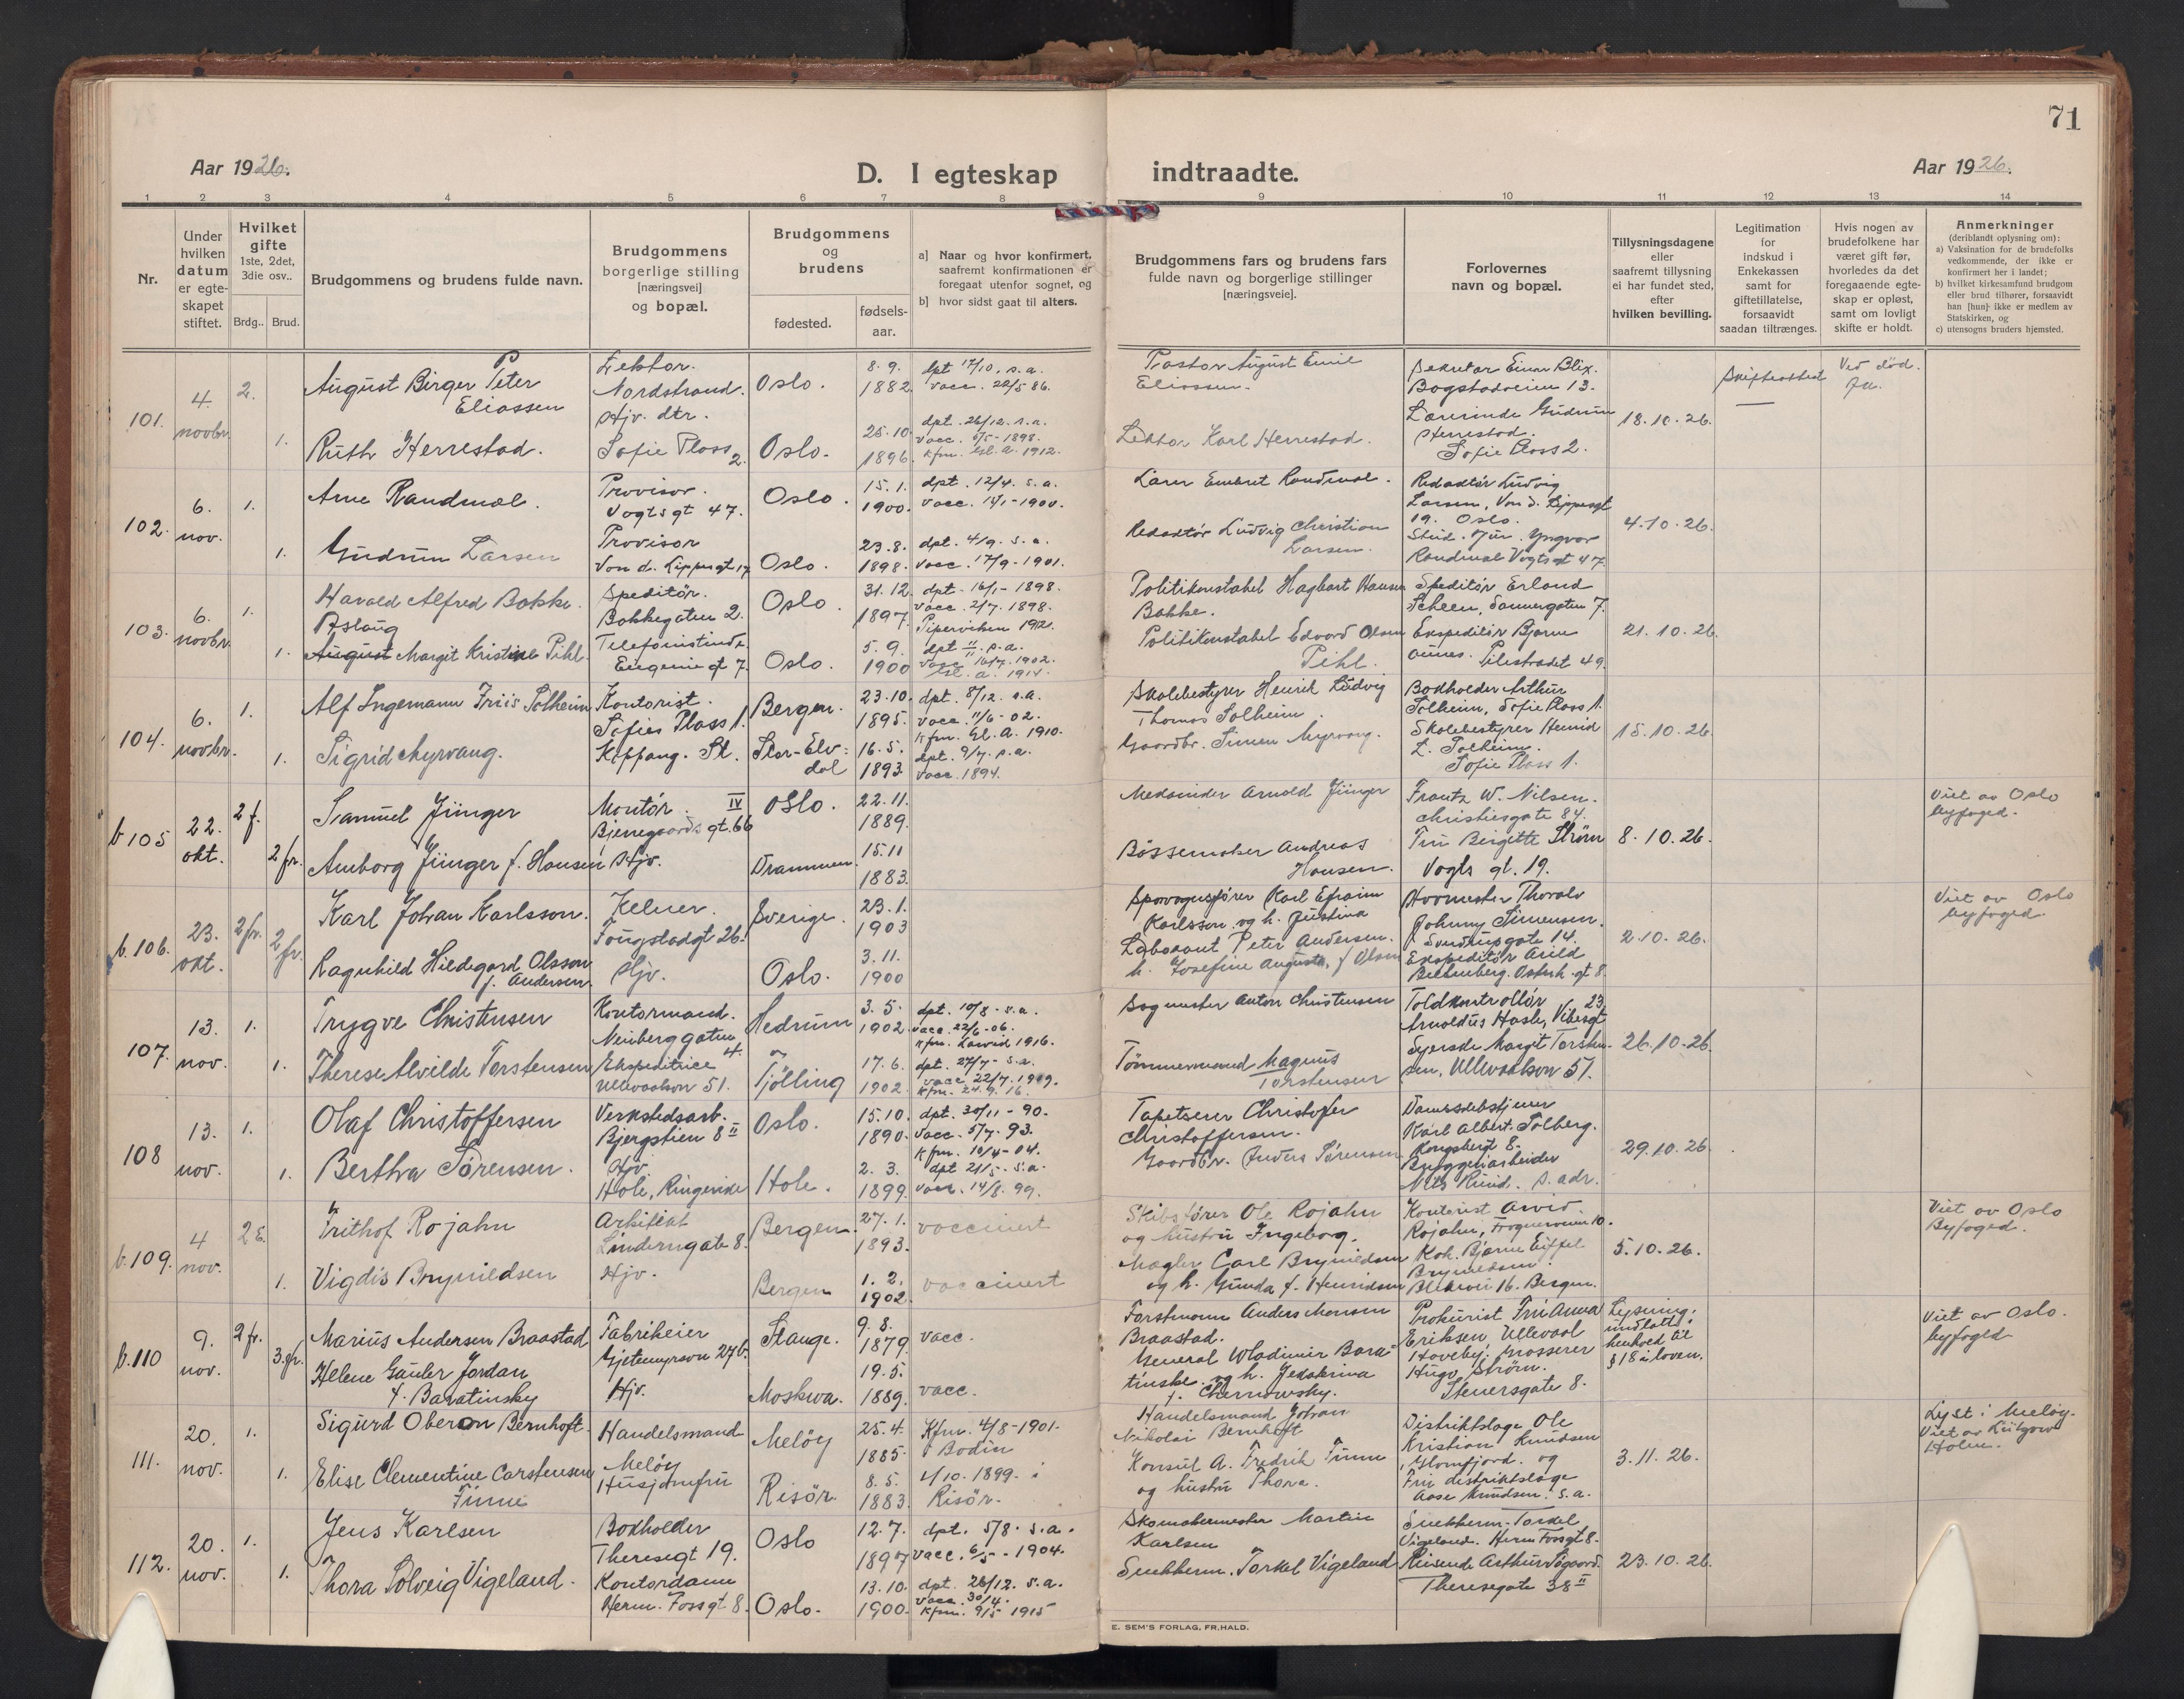 71
Aar 1926.
D. I egteskap indtraadte.
Aar 1926.
1 2 3 4 5 6 7 8 9 10 11 12 13 14
Nr.
Under hvilken datum er egte-skapet stiftet.
Hvilket gifte 1ste, 2det, 3die osv..
Brdg.. Brud.
Brudgommens og brudens fulde navn.
Brudgommens borgerlige stilling [næringsvei] og bopæl.
Brudgommens og brudens
fødested.
fødsels-aar.
a] Naar og hvor konfirmert, saafremt konfirmationen er foregaat utenfor sognet, og
b] hvor sidst gaat til alters.
Brudgommens fars og brudens fars fulde navn og borgerlige stillinger [næringsveie].
Forlovernes navn og bopæl.
Tillysningsdagene eller saafremt tillysning ei har fundet sted, efter hvilken bevilling.
Legitimation for indskud i Enkekassen samt for giftetillatelse, forsaavidt saadan tiltrænges.
Hvis nogen av brudefolkene har været gift før, hvorledes da det foregaaende egte-skap er opløst, samt om lovligt skifte er holdt.
Anmerkninger (deriblandt oplysning om):
a) Vaksination for de brudefolks vedkommende, der ikke er konfirmert her i landet;
b) hvilket kirkesamfund brudgom eller brud tilhører, forsaavidt han [hun] ikke er medlem av Statskirken, og
c) utensogns bruders hjemsted.
101. 4. novbr. 2. August Birger Peter Eliassen
Lektor. Nordstrand. Oslo. 8.9. 1882. dpt 17/10. s.a. vacc. 22/5 86.
Pastor August Emil Eliassen.
Sekretær Einar Blix. Bogstadveien 13.
Skifteattest Ved død. Ja.
1. Ruth Herrestad.
Hjv. dtr. Sofie Plass 2. Oslo. 25.10. 1896. dpt. 26/12. s.a. vacc. 5/5-1898. Kfm. Gl. A. 1912.
Lektor Karl Herrestad.
Lærerinde Gudrun Herrestad. Sofie Plass 2.
18.10.26.
102. 6. nov. 1. Arne Randmæl.
Provisor. Vogtsgt 47. Oslo. 15.1. 1900. dpt. 12/4. s.a. vacc. 15/1-1900.
Lærer Embret Randmæl.
Redaktør Ludvig Larsen, Von d. Lippesgt 19. Oslo.
4.10.26.
1. Gudrun Larsen
Provisor Von d. Lippesgt 17 Oslo. 23.8. 1898. dpt. 4/9. s.a. vacc. 17/9-1901.
Redaktør Ludvig Christian Larsen.
Stud. Jur. Yngvar Randmæl Vogtsgt 47.
103. 6. novbr. 1. Harald Alfred Bakke.
Speditør. Bakkegaten 2. Oslo. 31.12. 1897. dpt. 16/1-1898. vacc. 2/7. 1898. Piperviken 1912.
Politikonstabel Hagbart Hansen Bakke.
Speditør Erland Scheen, Sannergaten 7.
21.10.26.
1. Aslaug August Margit Kristine Pihl.
Telefonistinde. Eugeniegt 7. Oslo. 5.9. 1900 dpt s.a. vacc 16/7. 1902. Gl. A. 1914.
Politikonstabel Edvard Olsen Pihl.
Ekspeditør Bjarne Pilestrædet 49.
104. 6. novbr. 1. Alf Ingemann Friis Solheim
Kontorist. Sofies Plass 1. Bergen. 23.10. 1895. dpt. 8/12. s.a. vacc. 11/6-02. Kfm. Gl. A. 1910.
Skolebestyrer Henrik Ludvig Thomas Solheim.
Bokholder Arthur Solheim, Sofie Plass 1.
15.10.26.
1. Sigrid Myrvang.
Koppang. St. Stor-Elvdal 16.5. 1893. dpt. 9/7. s.a. vacc. 1894.
Gaardbr. Simen Myrvang.
Skolebestyrer Henrik L. Solheim. Sofie Plass 1.
b 105 22. okt. 2 f. Samuel Jünger
Montør. IV Bjerregaards gt. 66 Oslo. 22.11. 1889.
Arnold Jünger
Frantz W. Nilsen. Christiesgate 84.
Viet av Oslo byfoged.
2 fr. Amborg Jünger f. Hansen
Hjv. Drammen. 15.11 1883.
Bøssemaker Andreas Hansen.
Fru Birgitte Strøm Vogts gt. 19.
8.10.26.
b. 106. 23. okt. 2 fr. Karl Johan Karlsson.
Kelner. Fougstadgt 26. Sverige. 23.1. 1903
Sporvognsfører Karl Efraim Karlsson og h. Justina
Hovmester Thorolv Johnny Simensen. Sverdrupsgate 14.
2.10.26.
Viet av Oslo byfoged.
2 fr. Ragnhild Hildegard Olsson f. Andersen.
Hjv. Oslo. 3.11. 1900
Laborant Peter Andersen. h. Josefine Augusta, f Olsen
Ekspeditør Arild Osterh. gt 8.
107. 13. nov. 1. Trygve Christensen
Kontormand. Neuberggaten 4. Hedrum 3.5. 1902. dpt. 10/8. s.a. vacc. 22/6-06. Kfm. Larvik 1916.
Sagmester Anton Christensen
Toldkontrollør Arnoldus Hasle, Vibesgt 23.
26.10.26.
1. Therese Alvilde Torstensen
Ekspeditrice Ullevaalsvn 51. Tjölling 17.6. 1902. dpt. 27/7. s.a. vacc 22/7. 1909. Kfm. 24.9.16.
Tømmermand Magnus Torstensen
Syerske Margit Torstensen, Ullevaalsvn 51.
108 13. nov. 1. Olaf Christoffersen
Verkstedsarb. Bjergstien 8 II Oslo. 15.10. 1890. dpt. 30/11-90. vacc. 5/7. 93. Kfm. 10/4-04.
Tapetserer Christofer Christoffersen.
Karl Albert Solberg. Kongsbergt 8.
29.10.26.
1. Bertha Sørensen.
Hjv. Hole, Ringerike Hole. 2.3. 1899. dpt 21/5. s.a. vacc. 14/8. 99.
Gaardbr. Anders Sørensen
Bryggeriarbeider Nils Ruud. s. adr.
b. 109. 4 nov. 2 E. Frithof Rojahn
Arkitekt Lindernsgate 8. Bergen. 27.1. 1893. vaccinert
Skibsfører Ole Rojahn og hustru Ingeborg.
Kontorist Arvid Rojahn, Frognerveien 10.
5.10.26.
Viet av Oslo Byfoged.
1. Vigdis Brynildsen
Hjv. Bergen 1.2. 1902. vaccinert
Mægler Carl Brynildsen og h. Gunda f. Henriksen
Kah. Bjarne Eiffel Brynildsen. Blekevei 16. Bergen.
b. 110 9. nov. 2 fr. Marius Andersen Braastad
Fabrikeier Gjetemyrsvn 27b. Stange. 9.8. 1879 vacc.
Forstmann Anders Monsen Braastad.
Prokurist Fru Anna Eriksen, Ullevaal Haveby.
Lysning undlatt i henhold til § 18 i loven.
Viet av Oslo. byfoged
3. fr. Helene Gauler Jordan f. Baratinsky
Hjv. Moskwa. 19.5. 1889. vacc.
General Wladimir Baratinske og h. Jekaterina f. Chernowsky.
Grosserer Hugo Strøm. Stenersgate 8.
111. 20. nov. 1. Sigurd Oberon Bernhoft.
Handelsmand Meløy Meløy 25.4. 1885. Kfm. 4/8-1901. Bodin
Handelsmand Johan Nikolai Bernhoft
Distriktslæge Ole Kristian Knudsen, Glomfjord. og
3.11.26.
Lyst i Meløy. Viet av Holm.
1. Elise Clementine Carstensen Finne
Husjomfru Risör. 8.5. 1883. 1/10. 1899. i Risör.
Konsul A. Fredrik Finne og hustru Thora.
Fru distriktslæge Aase Knudsen. s.a.
112. 20. nov. 1. Jens Karlsen
Bokholder Theresegt 19. Oslo 12.7. 1897 dpt. 5/8. s.a. vacc. 6/5-1904.
Skomakermester Martin Karlsen
Snekkerm. Torkel Vigeland. Herm. Fossgt 8.
23.10.26.
1. Thora Solveig Vigeland.
Kontordame Herm. Fossgt 8. Oslo. 13.10. 1900. dpt. 26/12. s.a. vacc. 30/4. Kfm. 9/5 1915
Snekkerm. Torkel Vigeland
Reisende Arthur Søgaard. Theresegate 38 II
E. SEM'S FORLAG, FR.HALD.